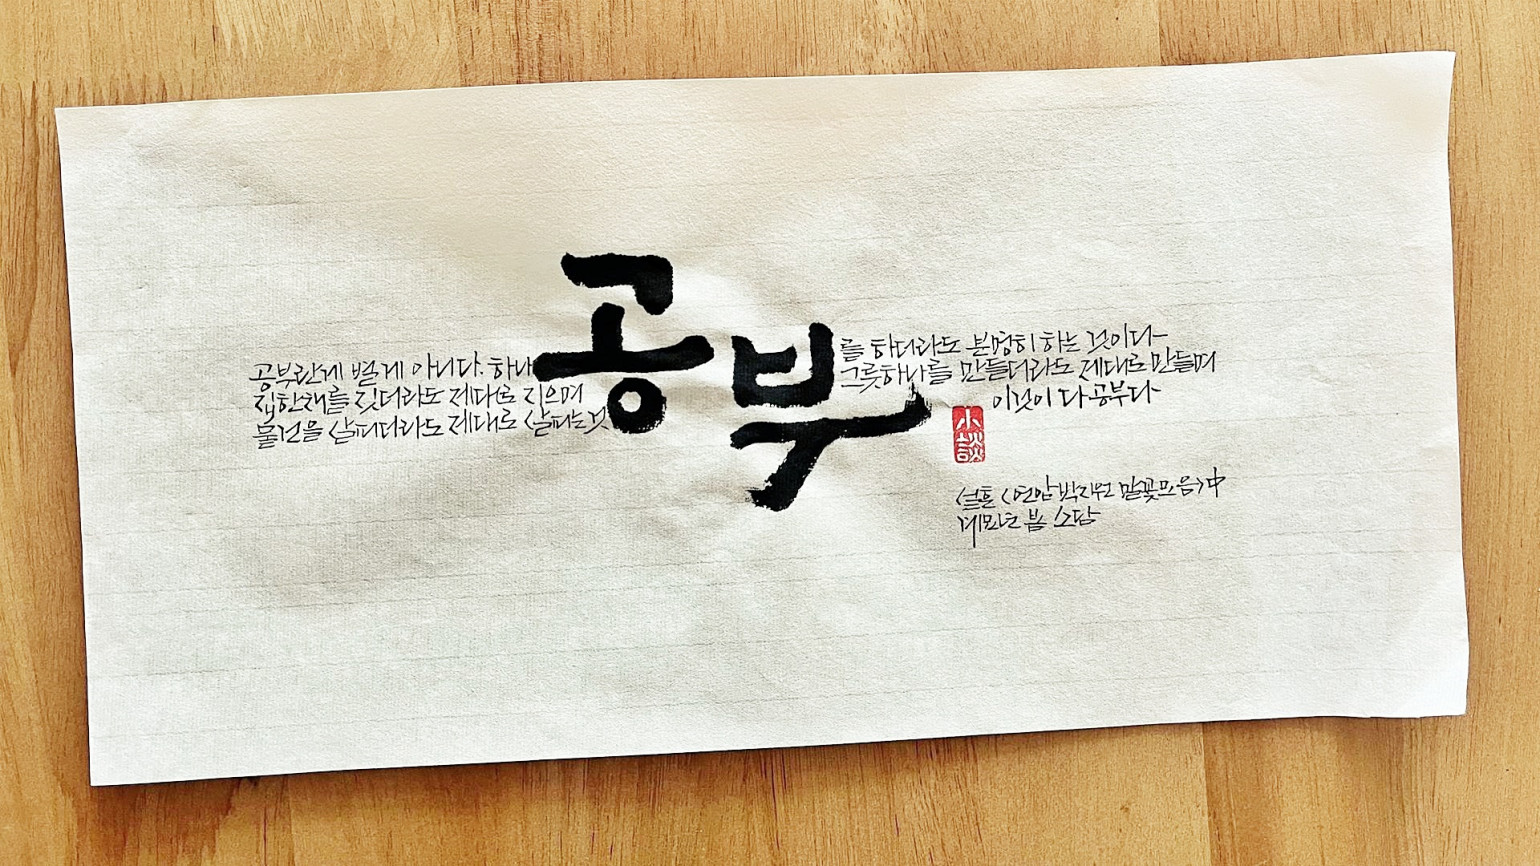 공부란게 별게 아니다. 하나 공부를 하더라도 분명히 하는 것이다
집한채를 짓더라도 제대로 지으며 그릇하나를 만들더라도 제대로 만들며
물건을 살피더라도 제대로 살피는것 이것이 다 공부다
小談
설흔 <연암 박지원 말꽃모음> 中
계묘년 봄 소담